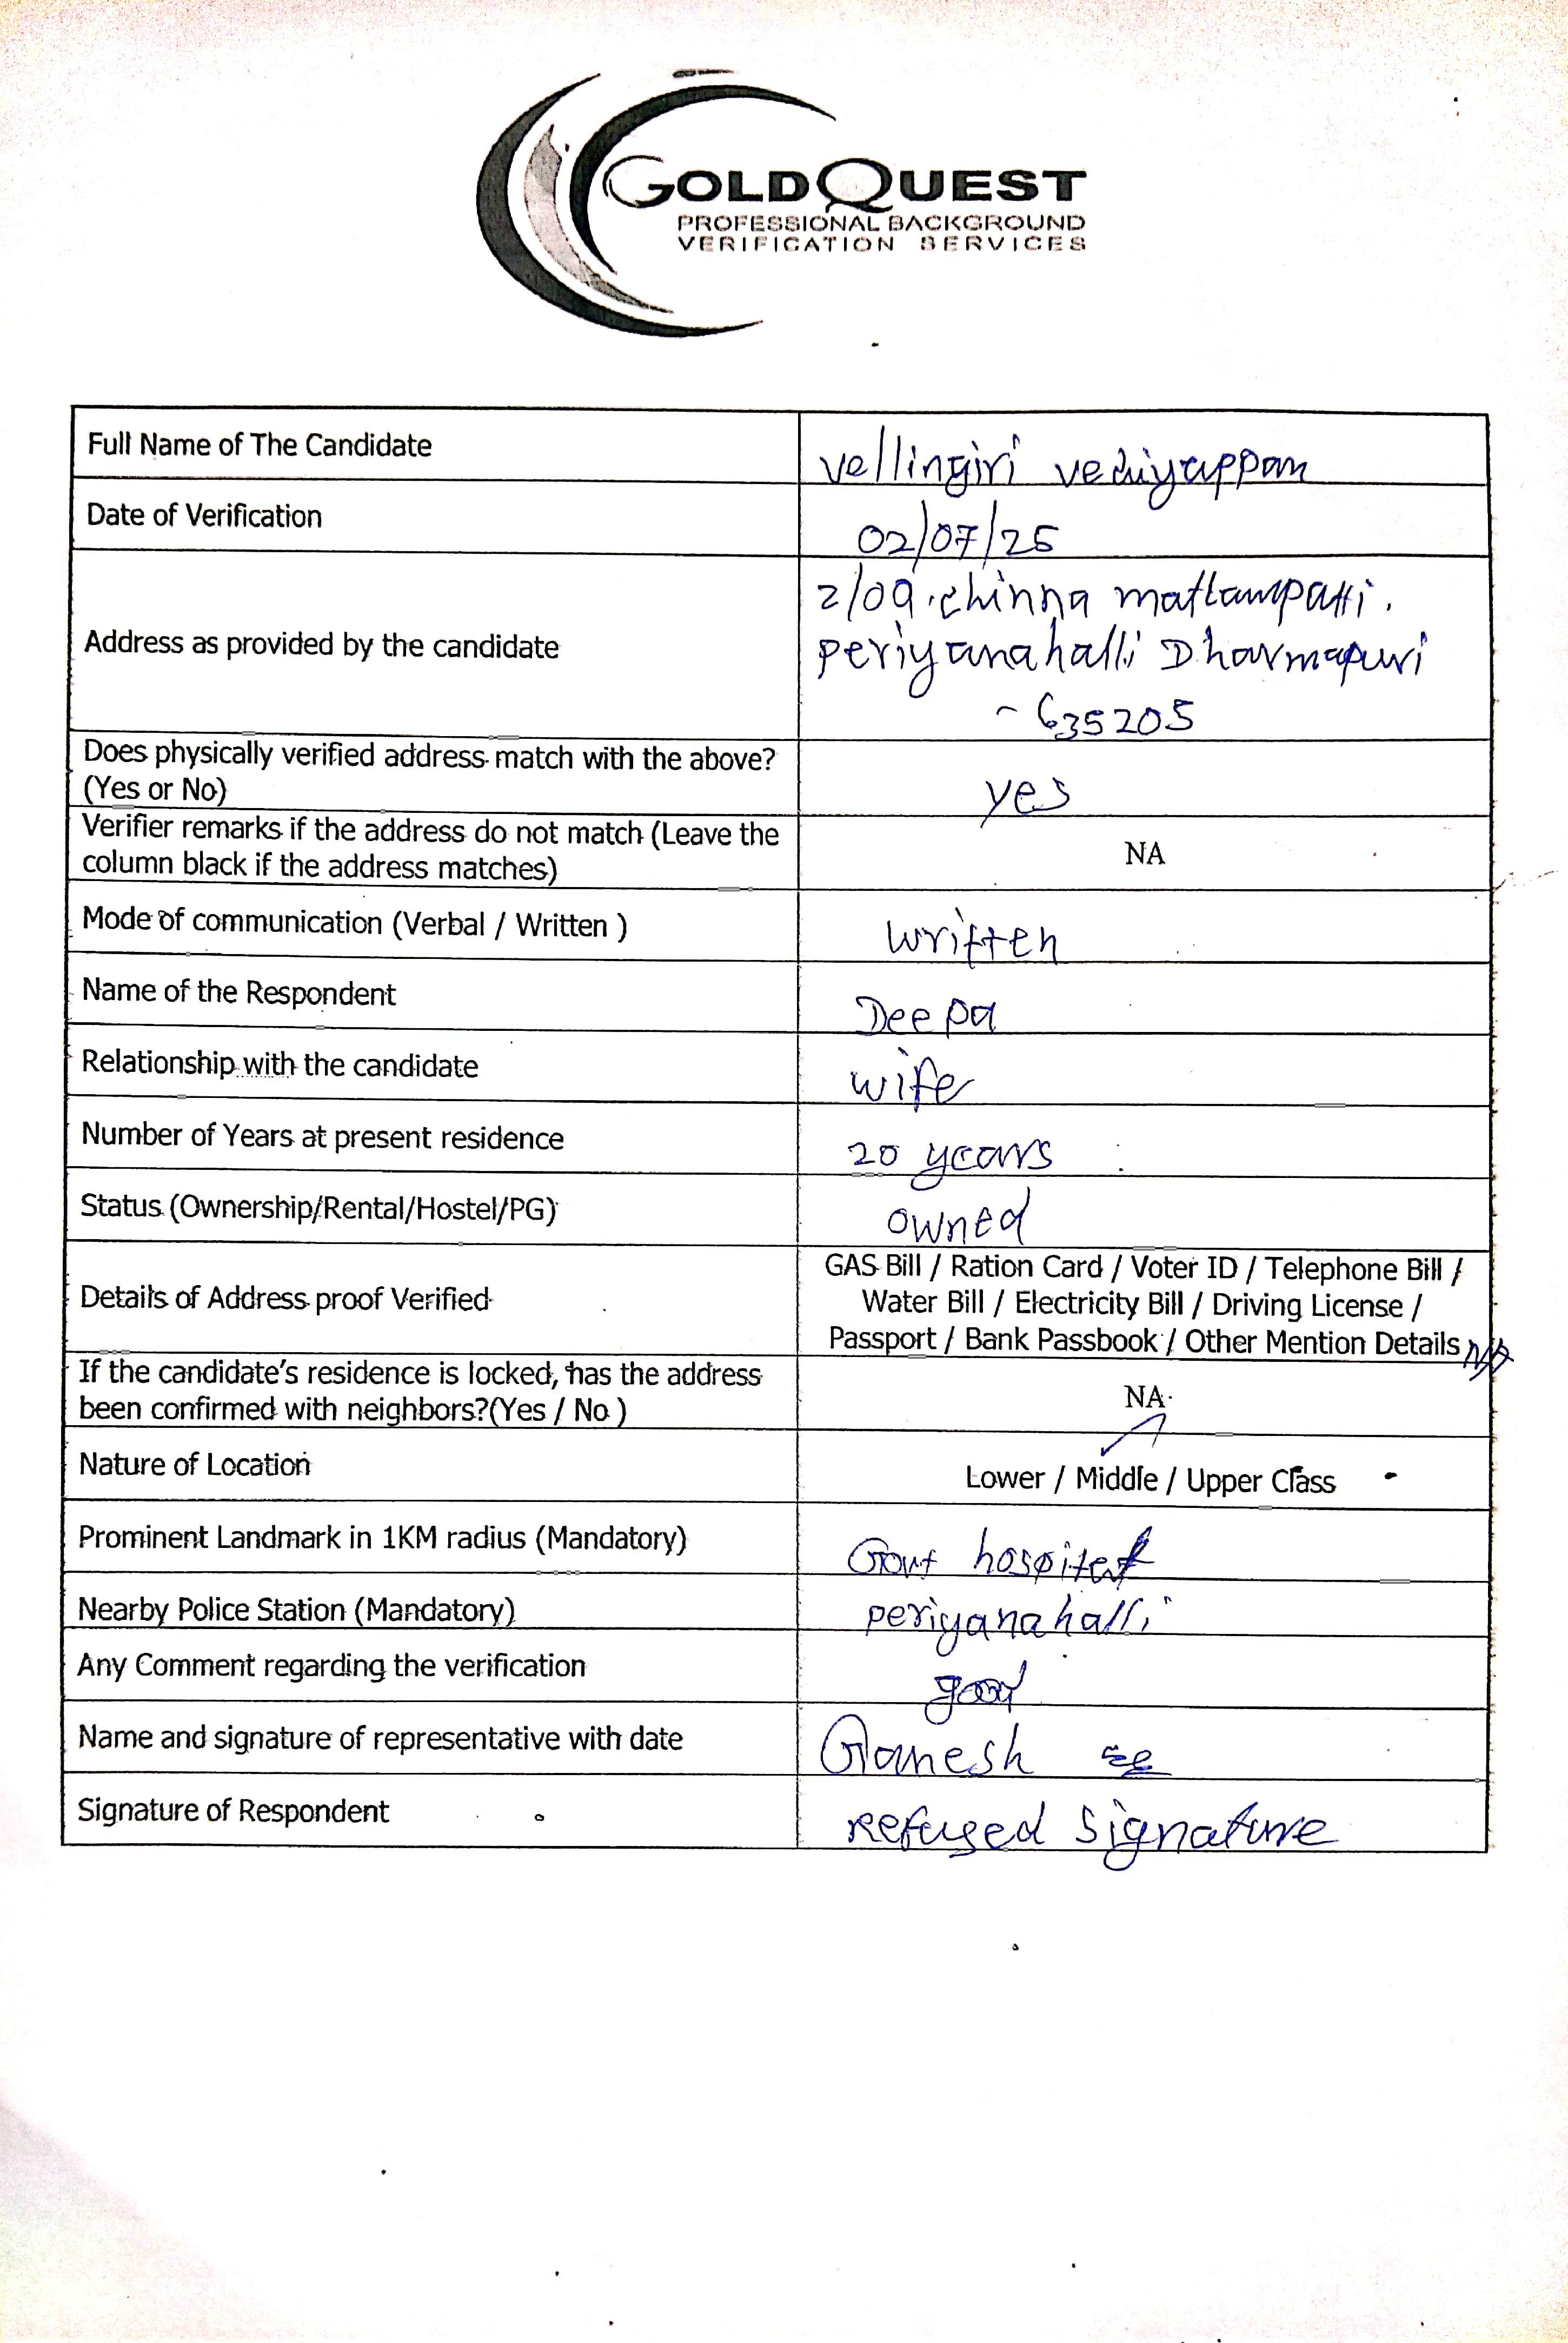 GOLDQUEST
PROFESSIONAL BACKGROUND
VERIFICATION SERVICES
Full Name of The Candidate
vellingiri vediyappan
Date of Verification
02/07/25
Address as provided by the candidate
2/09.chinna matlampatti.
periyanahalli Dharmapuri
- 635205
Does physically verified address match with the above?
(Yes or No)
yes
Verifier remarks if the address do not match (Leave the
column black if the address matches)
NA
Mode of communication (Verbal / Written )
written
Name of the Respondent
Deepa
Relationship with the candidate
wife
Number of Years at present residence
20 years
Status (Ownership/Rental/Hostel/PG)
owned
Details of Address proof Verified
GAS Bill / Ration Card / Voter ID / Telephone Bill /
Water Bill / Electricity Bill / Driving License /
Passport / Bank Passbook / Other Mention Details N/A
If the candidate's residence is locked, has the address
been confirmed with neighbors?(Yes / No )
NA
Nature of Location
Lower / Middle / Upper Class
Prominent Landmark in 1KM radius (Mandatory)
Govt hospital
Nearby Police Station (Mandatory)
periyanahalli
Any Comment regarding the verification
good
Name and signature of representative with date
Ganesh
Signature of Respondent
refused signature